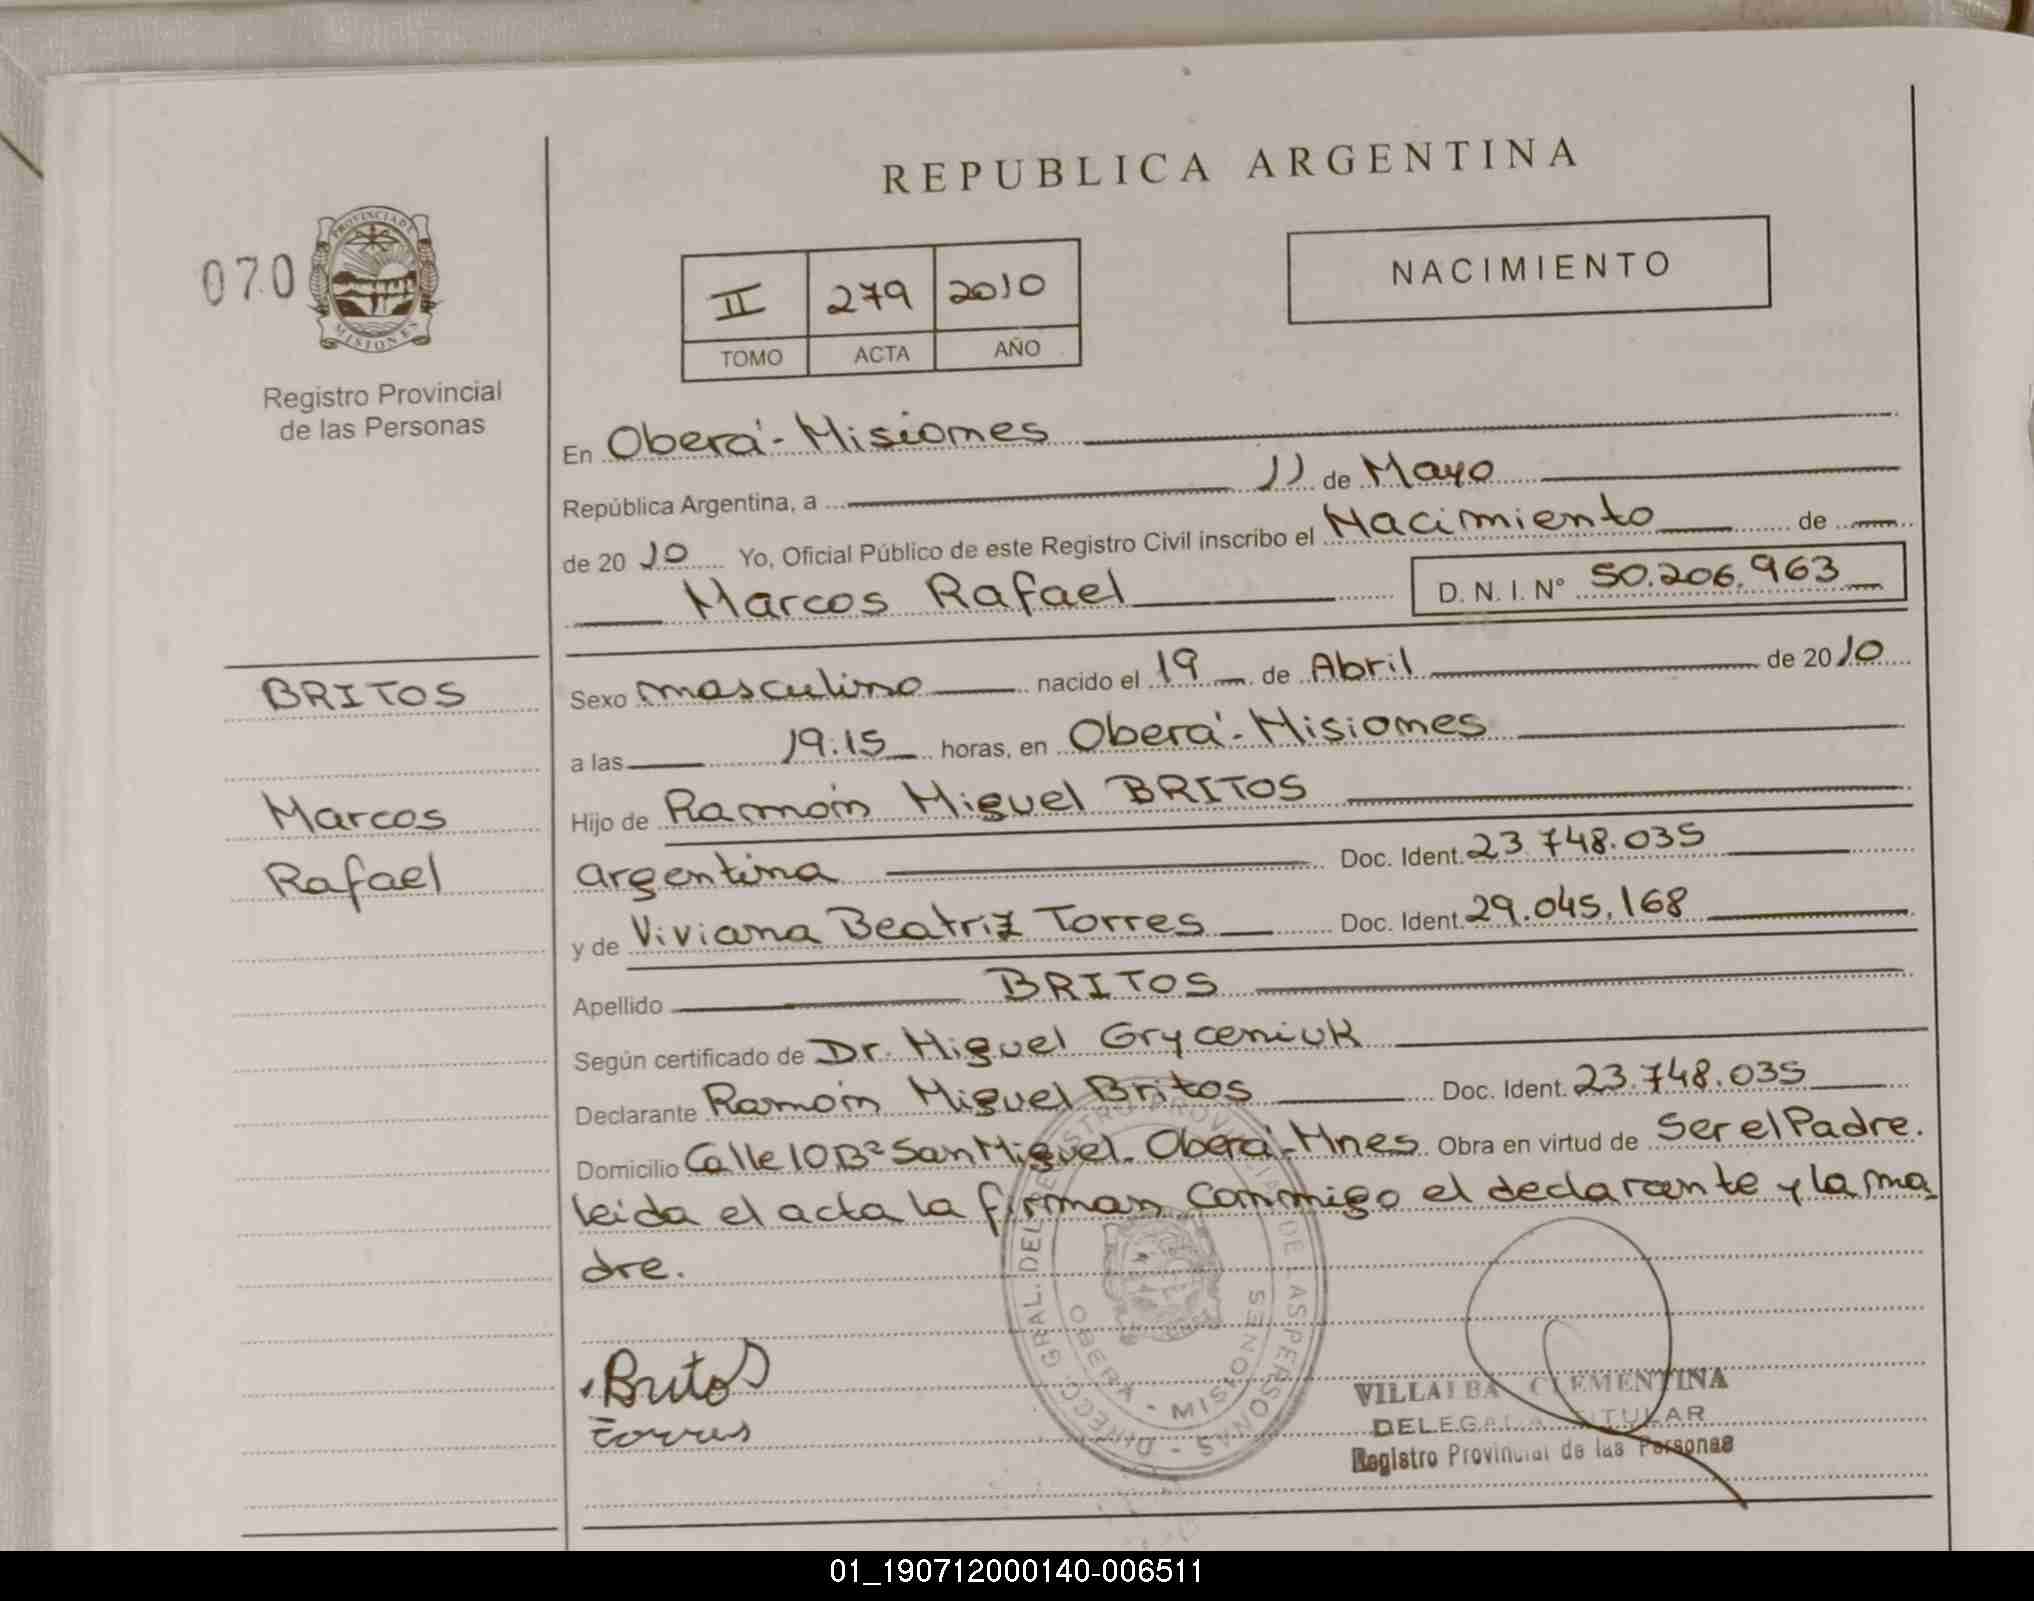 REPUBLICA ARGENTINA
070
PROVINCIA DE
MISIONES
Registro Provincial
de las Personas
II 279 2010
TOMO ACTA AÑO
NACIMIENTO
En Oberá - Misiones
República Argentina, a 11 de Mayo
de 2010 Yo, Oficial Público de este Registro Civil inscribo el Nacimiento de
Marcos Rafael D. N. I. Nº 50.206.963
BRITOS
Marcos
Rafael
Sexo masculino nacido el 19 de Abril de 2010
a las 19:15 horas, en Oberá - Misiones
Hijo de Ramón Miguel BRITOS
argentina Doc. Ident. 23.748.035
y de Viviana Beatriz Torres Doc. Ident. 29.045.168
Apellido BRITOS
Según certificado de Dr. Miguel Gryceniuk
Declarante Ramón Miguel Britos Doc. Ident. 23.748.035
Domicilio Calle 10 Bº San Miguel - Oberá - Mnes Obra en virtud de Ser el Padre.
leida el acta la firman conmigo el declarante y la ma
dre.
Britos
Torres
DIRECC. GRAL. DEL REGISTRO PROVINCIAL DE LAS PERSONAS
OBERA - MISIONES
VILLALBA CLEMENTINA
DELEGADA TITULAR
Registro Provincial de las Personas
01_190712000140-006511